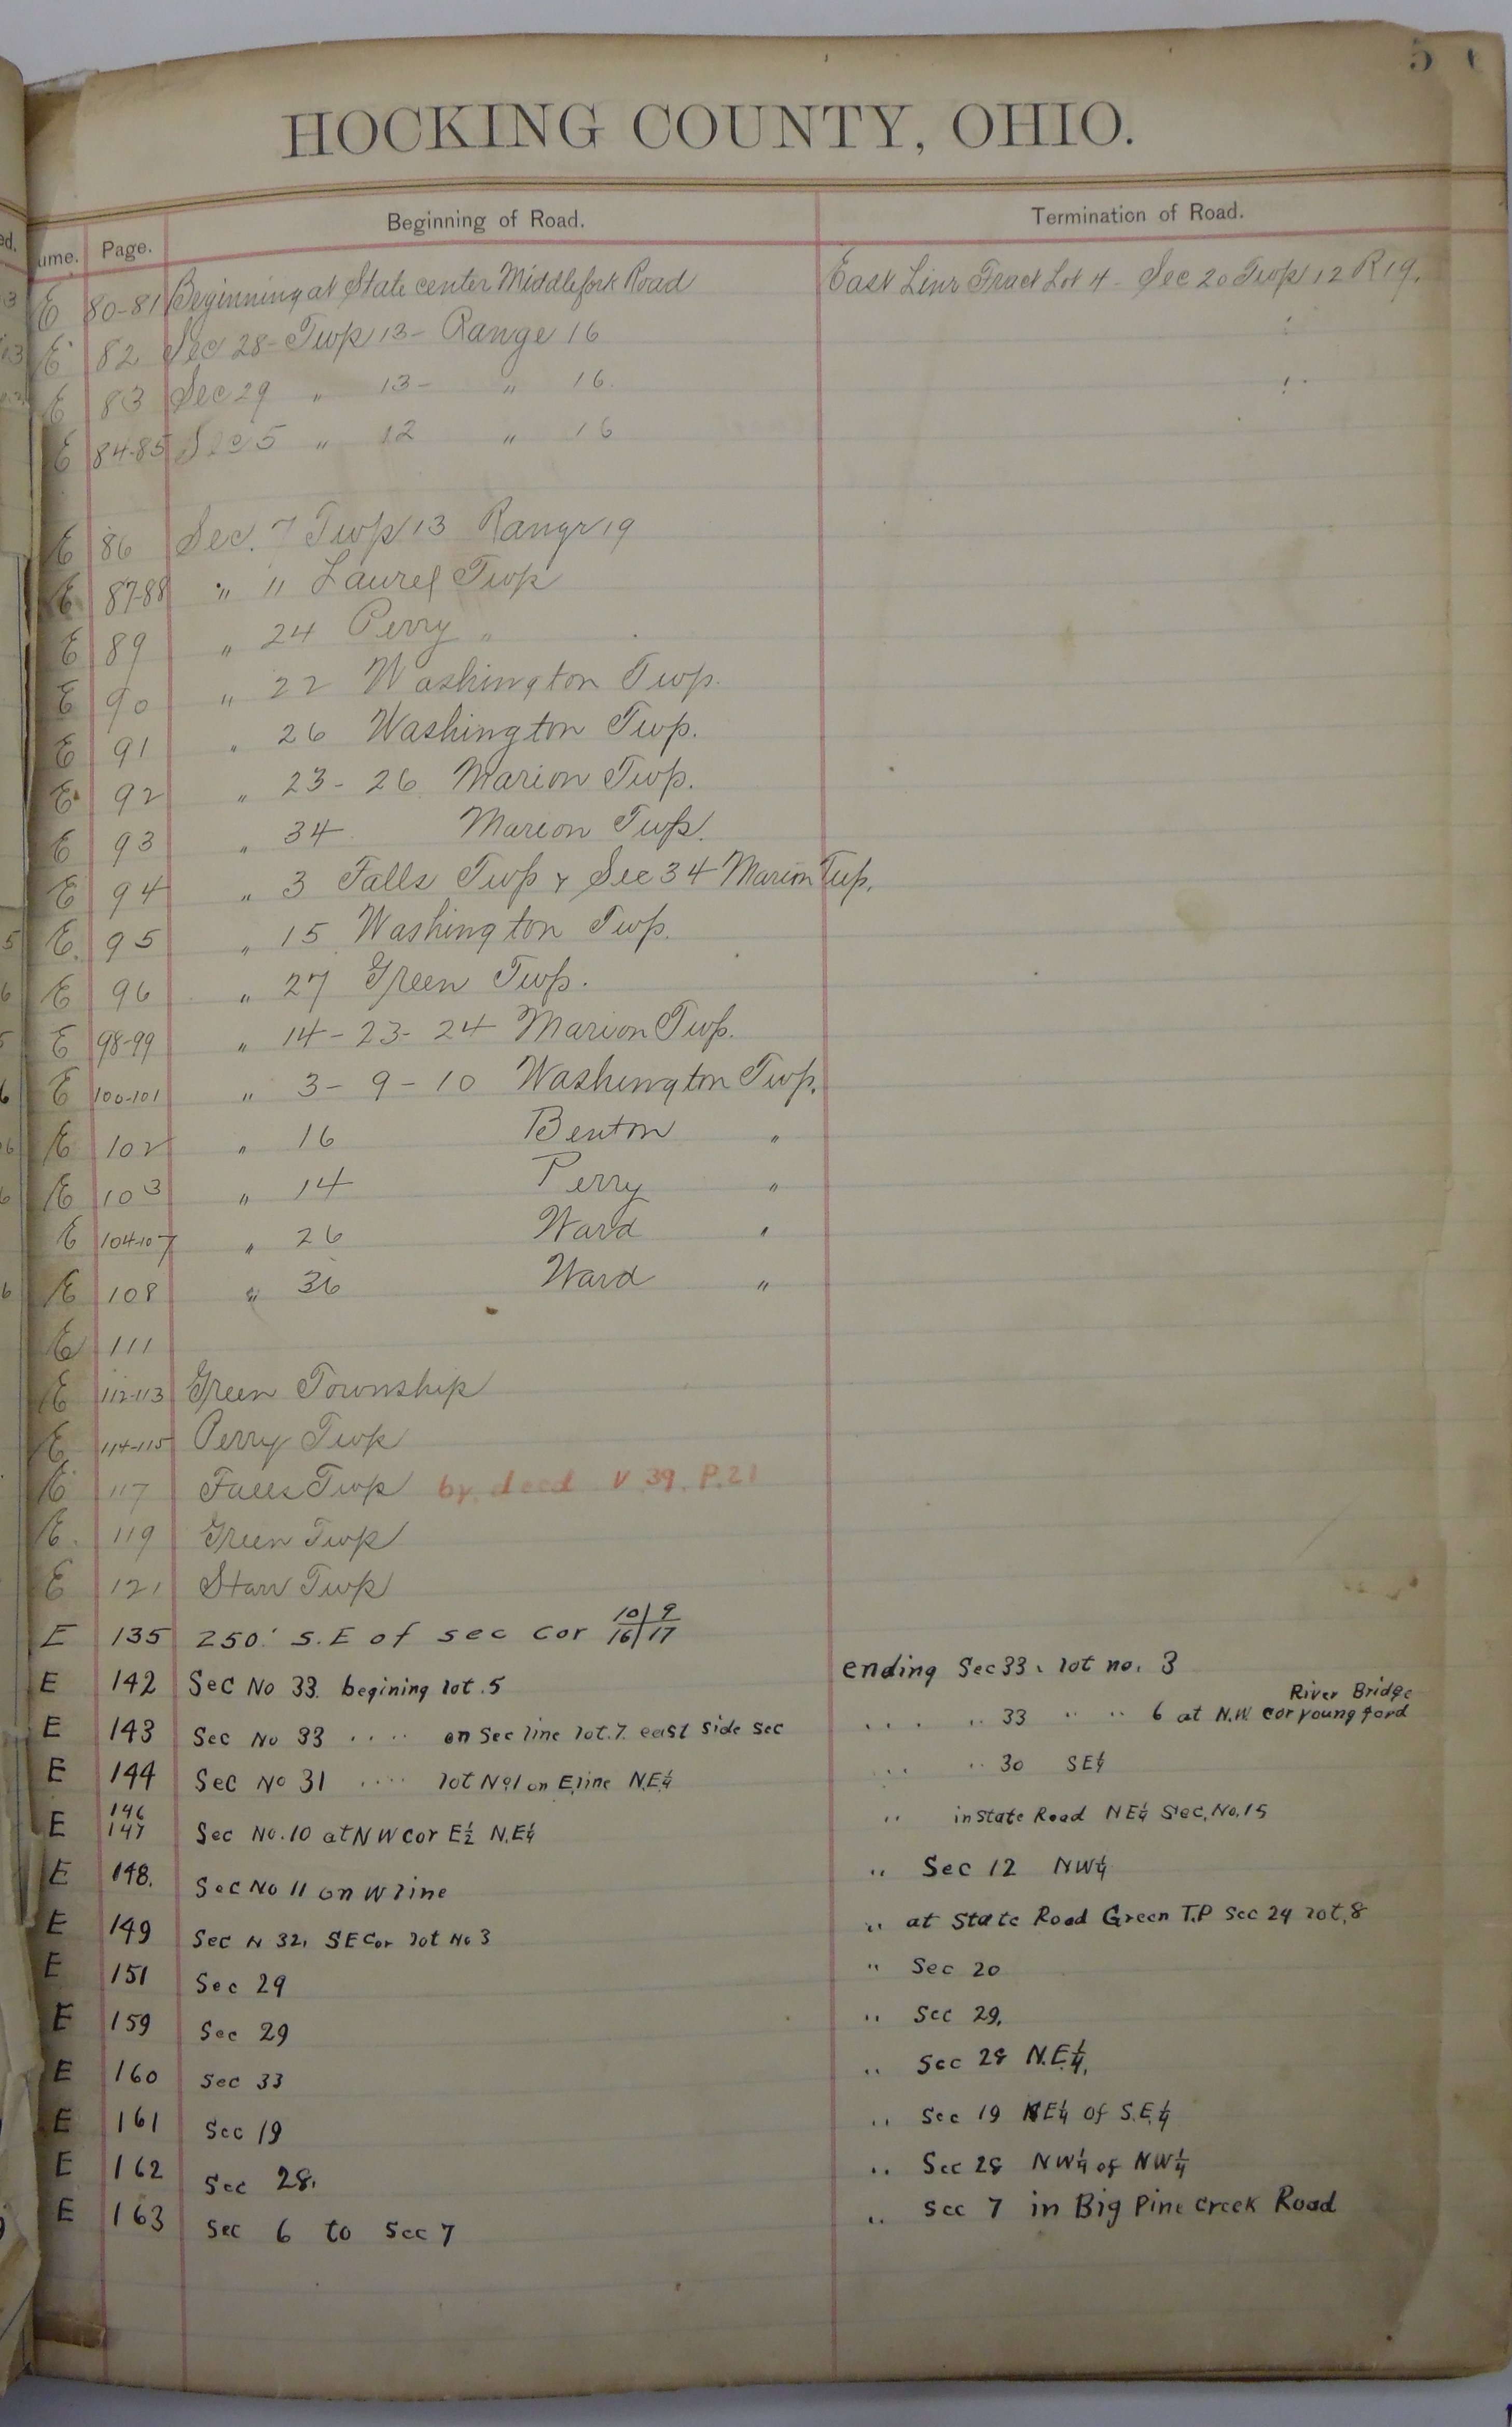 5
HOCKING COUNTY, OHIO.
ed. ume. Page. Beginning of Road. Termination of Road.
E 80-81 Beginning at State center Middlefork Road East Line Tract Lot 4 - Sec 20 Twp 12 R 19.
E 82 Sec 28 - Twp 13 - Range 16
E 83 Sec 29 " 13 - " 16.
E 84-85 Sec 5 " 12 " 16
E 86 Sec. 7 Twp 13 Range 19
E 87-88 " 11 Laurel Twp
E 89 " 24 Perry "
E 90 " 22 Washington Twp.
E 91 " 26 Washington Twp.
E 92 " 23 - 26 Marion Twp.
E 93 " 34 Marion Twp.
E 94 " 3 Falls Twp & Sec 34 Marion Twp.
E. 95 " 15 Washington Twp.
E 96 " 27 Green Twp.
E 98-99 " 14 - 23 - 24 Marion Twp.
E 100-101 " 3 - 9 - 10 Washington Twp.
E 102 " 16 Benton "
E 103 " 14 Perry "
E 104-107 " 26 Ward "
E 108 " 36 Ward "
E 111
E 112-113 Green Township
E 114-115 Perry Twp
E 117 Falls Twp by. deed V. 39. P. 21
E. 119 Green Twp
E 121 Starr Twp
E 135 250' S.E of sec cor 10|9 16|17
E 142 Sec No 33. begining lot. 5 ending Sec 33. lot no. 3
River Bridge
E 143 Sec No 33 .. .. on Sec line lot. 7. east side sec .. .. .. 33 .. .. 6 at N.W. cor young ford
E 144 Sec No 31 .. .. lot No 1 on E line N.E¼ .. .. .. 30 SE¼
E 146 147 Sec No. 10 at N W cor E½ N.E¼ .. in State Road NE¼ Sec. No. 15
E 148. Sec No 11 on W line .. Sec 12 NW¼
E 149 Sec N 32, SE Cor lot No 3 .. at State Road Green T.P Sec 24 lot, 8
E 151 Sec 29 " Sec 20
E 159 Sec 29 .. Sec 29.
E 160 Sec 33 .. Sec 28 N.E¼.
E 161 Sec 19 .. Sec 19 NE¼ of S.E.¼
E 162 Sec 28. .. Sec 28 NW¼ of NW¼
E 163 Sec 6 to Sec 7 .. Sec 7 in Big Pine Creek Road